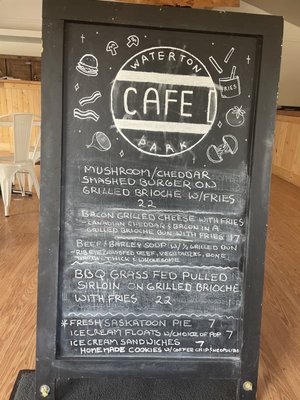 WATERTON
FRIES
CAFE
PARK
MUSHROOM/CHEDDAR
SMASHED BURGER ON
GRILLED BRIOCHE W/FRIES
22
BACON GRILLED CHEESE WITH FRIES
- CANADIAN CHEDDAR & BACON IN A
GRILLED BRIOCHE BUN WITH FRIES 17
BEEF & BARLEY SOUP W/ ½ GRILLED BUN
BEEF, VEGETABLES, BONE
BROTH, THICK & WHOLESOME
BBQ GRASS FED PULLED
SIRLOIN ON GRILLED BRIOCHE
WITH FRIES 22
* FRESH SASKATOON PIE 7
ICE CREAM FLOATS W/CHOICE OF POP 7
ICE CREAM SANDWICHES 7
HOMEMADE COOKIES W/